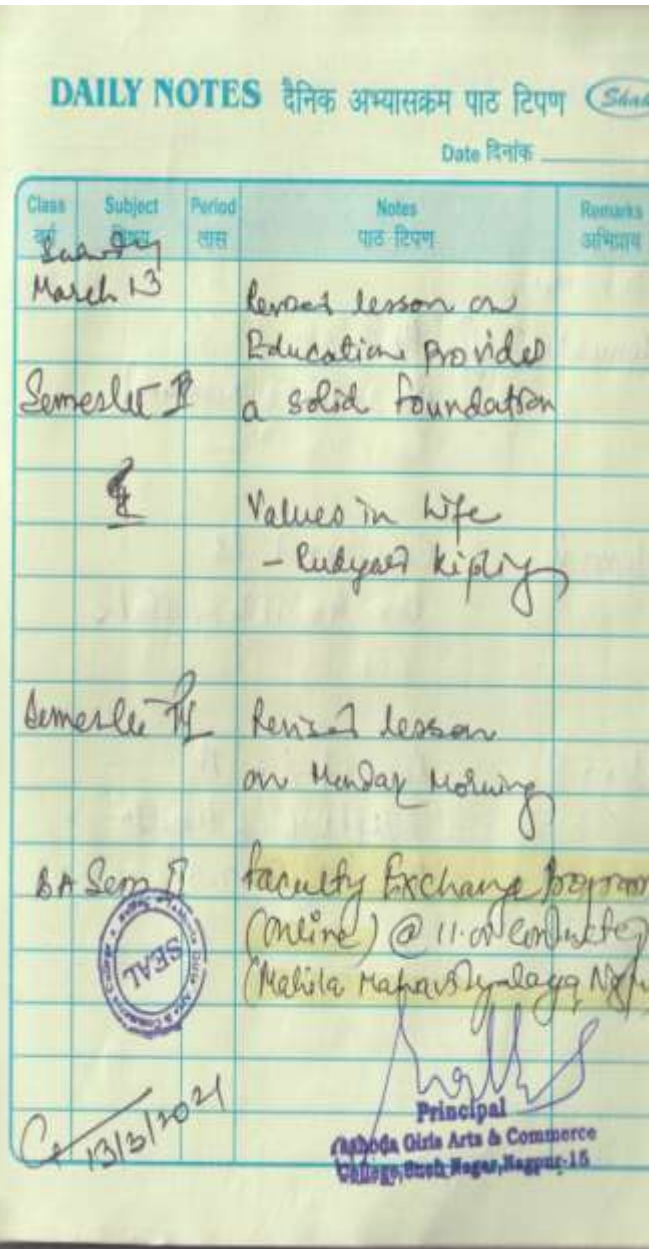 DAILY NOTES दैनिक अभ्यासक्रम पाठ टिपण
Date दिनांक
Class Subject Period Notes Remarks
वर्ग विषय तास पाठ टिपण अभिप्राय
March 13
Revised lesson on
Education provided
Semester II a solid foundation
Values in Life
- Rudyard Kipling
Semester Revised lesson
on Monday Morning
BA Sem II Faculty Exchange Program
(Online) @ 11.00 Conducted
(Mahila Mahavidyalaya
SEAL
13/3/2021
Principal
Girls Arts & Commerce
College, Sneh Nagar, Nagpur-15